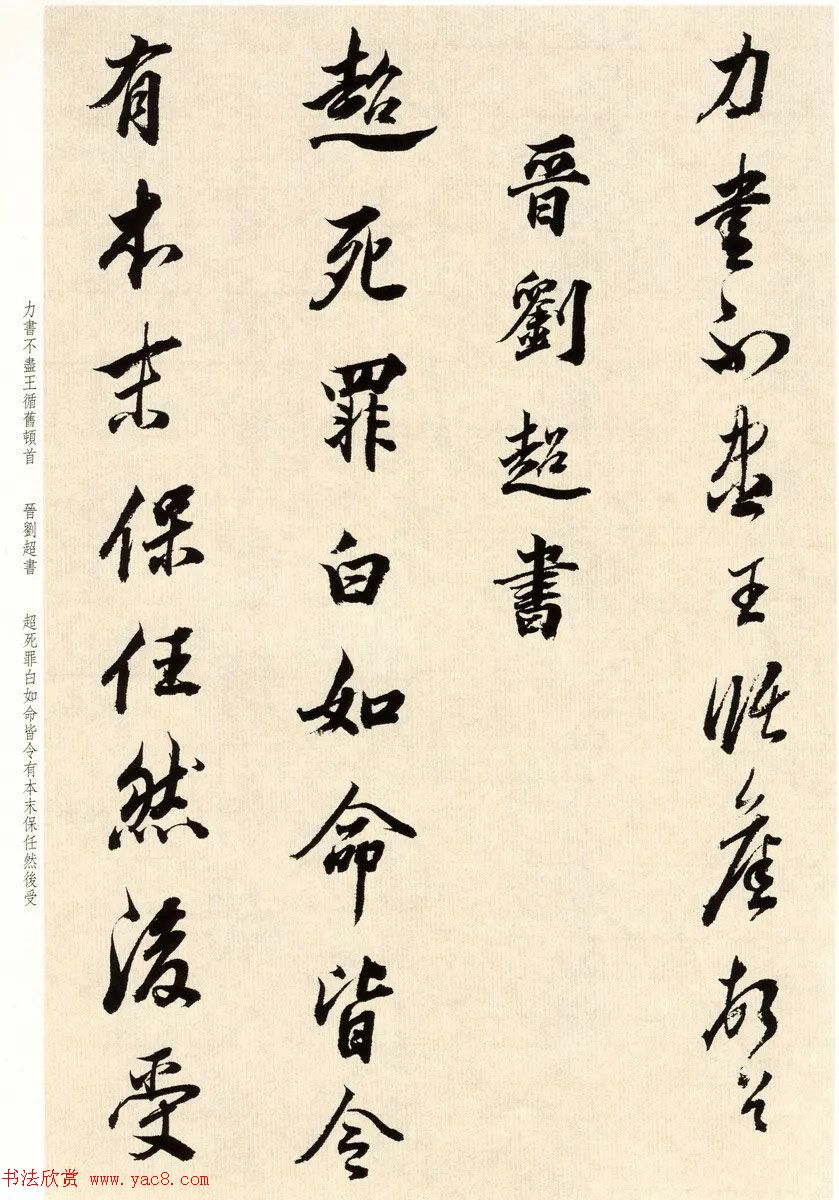 力書不盡王循舊頓首
晉劉超書
超死罪白如命皆令
有本末保任然後受
力書不盡王循舊頓首　晉劉超書　超死罪白如命皆令有本末保任然後受
书法欣赏 www.yac8.com